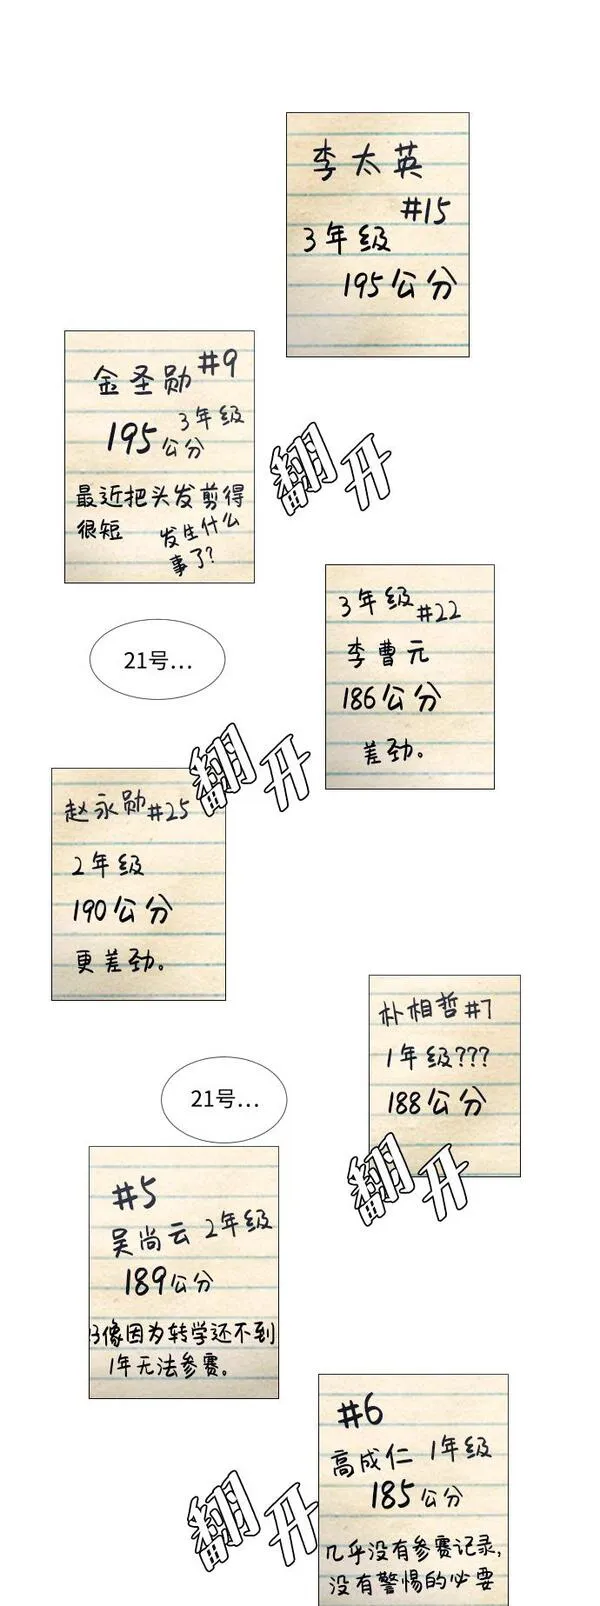 李太英
#15
3年级
195公分
金圣勋 #9
3年级
195公分
最近把头发剪得
很短
发生什么
事了?
翻开
3年级 #22
李曹元
186公分
差劲。
21号...
翻开
赵永勋 #25
2年级
190公分
更差劲。
朴相哲 #7
1年级???
188公分
21号...
翻开
#5
吴尚云 2年级
189公分
好像因为转学还不到
1年无法参赛。
#6
高成仁 1年级
185公分
几乎没有参赛记录,
没有警惕的必要
翻开